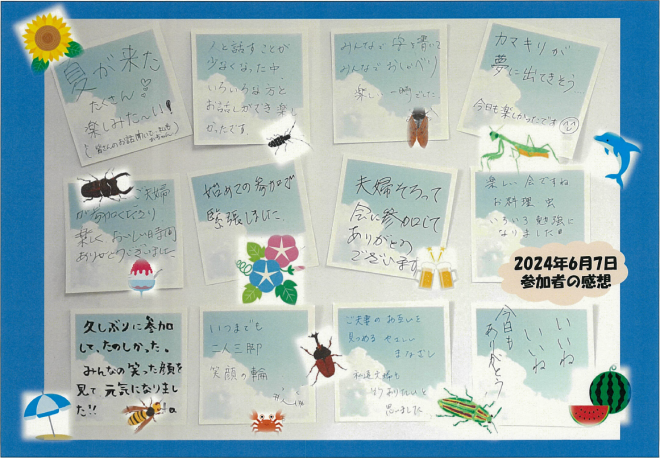 夏が来た
たくさん
楽しみた〜い!
人と話すことが
少なくなった中、
いろいろな方と
お話しができ楽し
かったです
みんなで字を書いて
みんなでおしゃべり
楽しい一時でした
カマキリが
夢に出てきそう…
今日も楽しかったです
ご夫婦
が参加くださり
楽しくおいしい時間
ありがとうございました
始めての参加で
緊張しました。
夫婦そろって
会に参加して
ありがとう
ございます
楽しい会ですね
お料理 虫
いろいろ勉強に
なりました!
2024年6月7日
参加者の感想
久しぶりに参加
して、たのしかった。
みんなの笑った顔を
見て元気になりまし
た!!
いつまでも
二人三脚
笑顔の輪
ご夫妻のお互いを
見つめるやさしい
まなざし
私達夫婦も
ありたいと
思いました
いいね
いいね
今日も
ありがとう